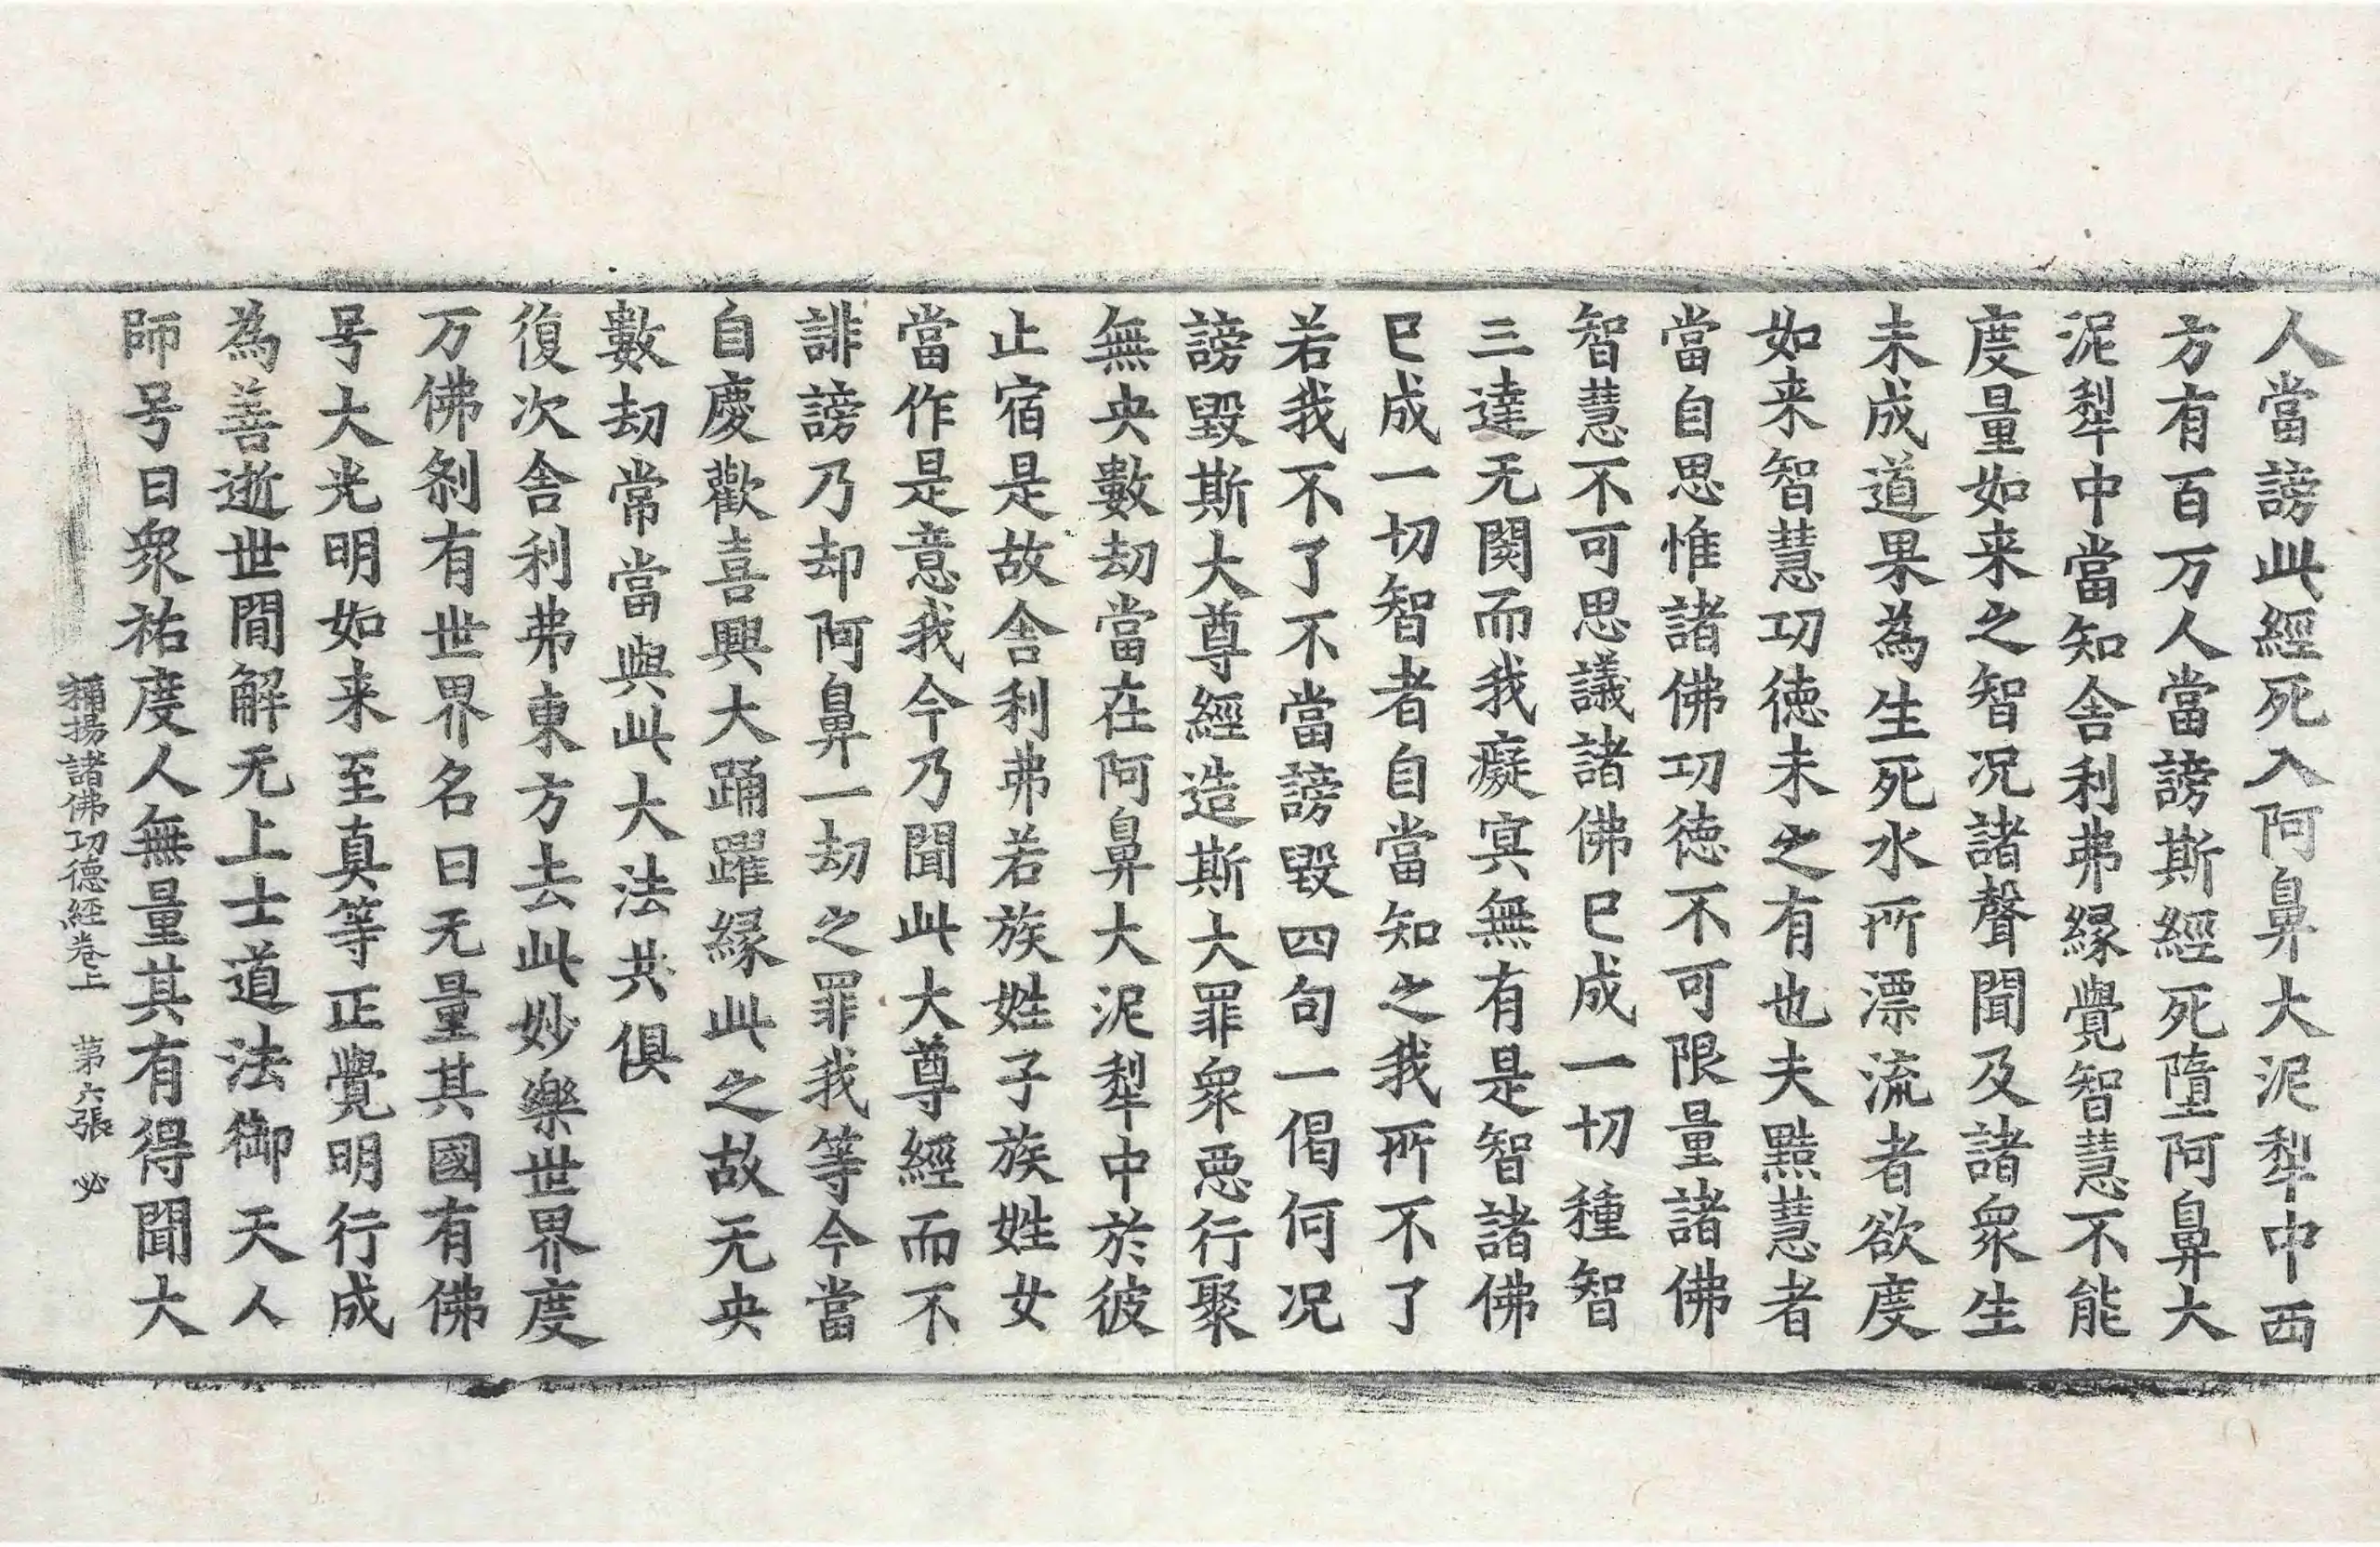 人當謗此經死入阿鼻大泥犁中西
方有百万人當謗斯經死墮阿鼻大
泥犁中當知舎利弗緣覺智慧不能
度量如来之智况諸聲聞及諸衆生
未成道果為生死水所漂流者欲度
如来智慧功徳未之有也夫黠慧者
當自思惟諸佛功徳不可限量諸佛
智慧不可思議諸佛已成一切種智
三達无閡而我癡冥無有是智諸佛
已成一切智者自當知之我所不了
若我不了不當謗毀四句一偈何况
謗毀斯大尊經造斯大罪衆惡行聚
無央數劫當在阿鼻大泥犁中於彼
止宿是故舎利弗若族姓子族姓女
當作是意我今乃聞此大尊經而不
誹謗乃却阿鼻一劫之罪我等今當
自慶歡喜興大踊躍緣此之故无央
數劫常當與此大法共俱
復次舎利弗東方去此妙樂世界度
万佛刹有世界名曰无量其國有佛
号大光明如来至真等正覺明行成
為善逝世間解无上士道法御天人
師号曰衆祐度人無量其有得聞大
稱揚諸佛功德経卷上 第六張 必